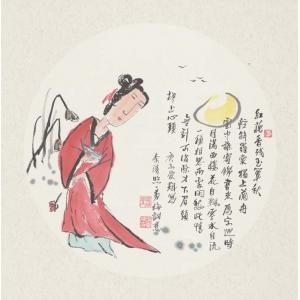 紅藕香残玉簟秋
轻解羅裳獨上蘭舟
雲中誰寄錦書来雁字回時
月滿西樓花自飄零水自流
一種相思兩處閒愁此情
無計可消除才下眉頭
却上心頭
李清照一剪梅詞